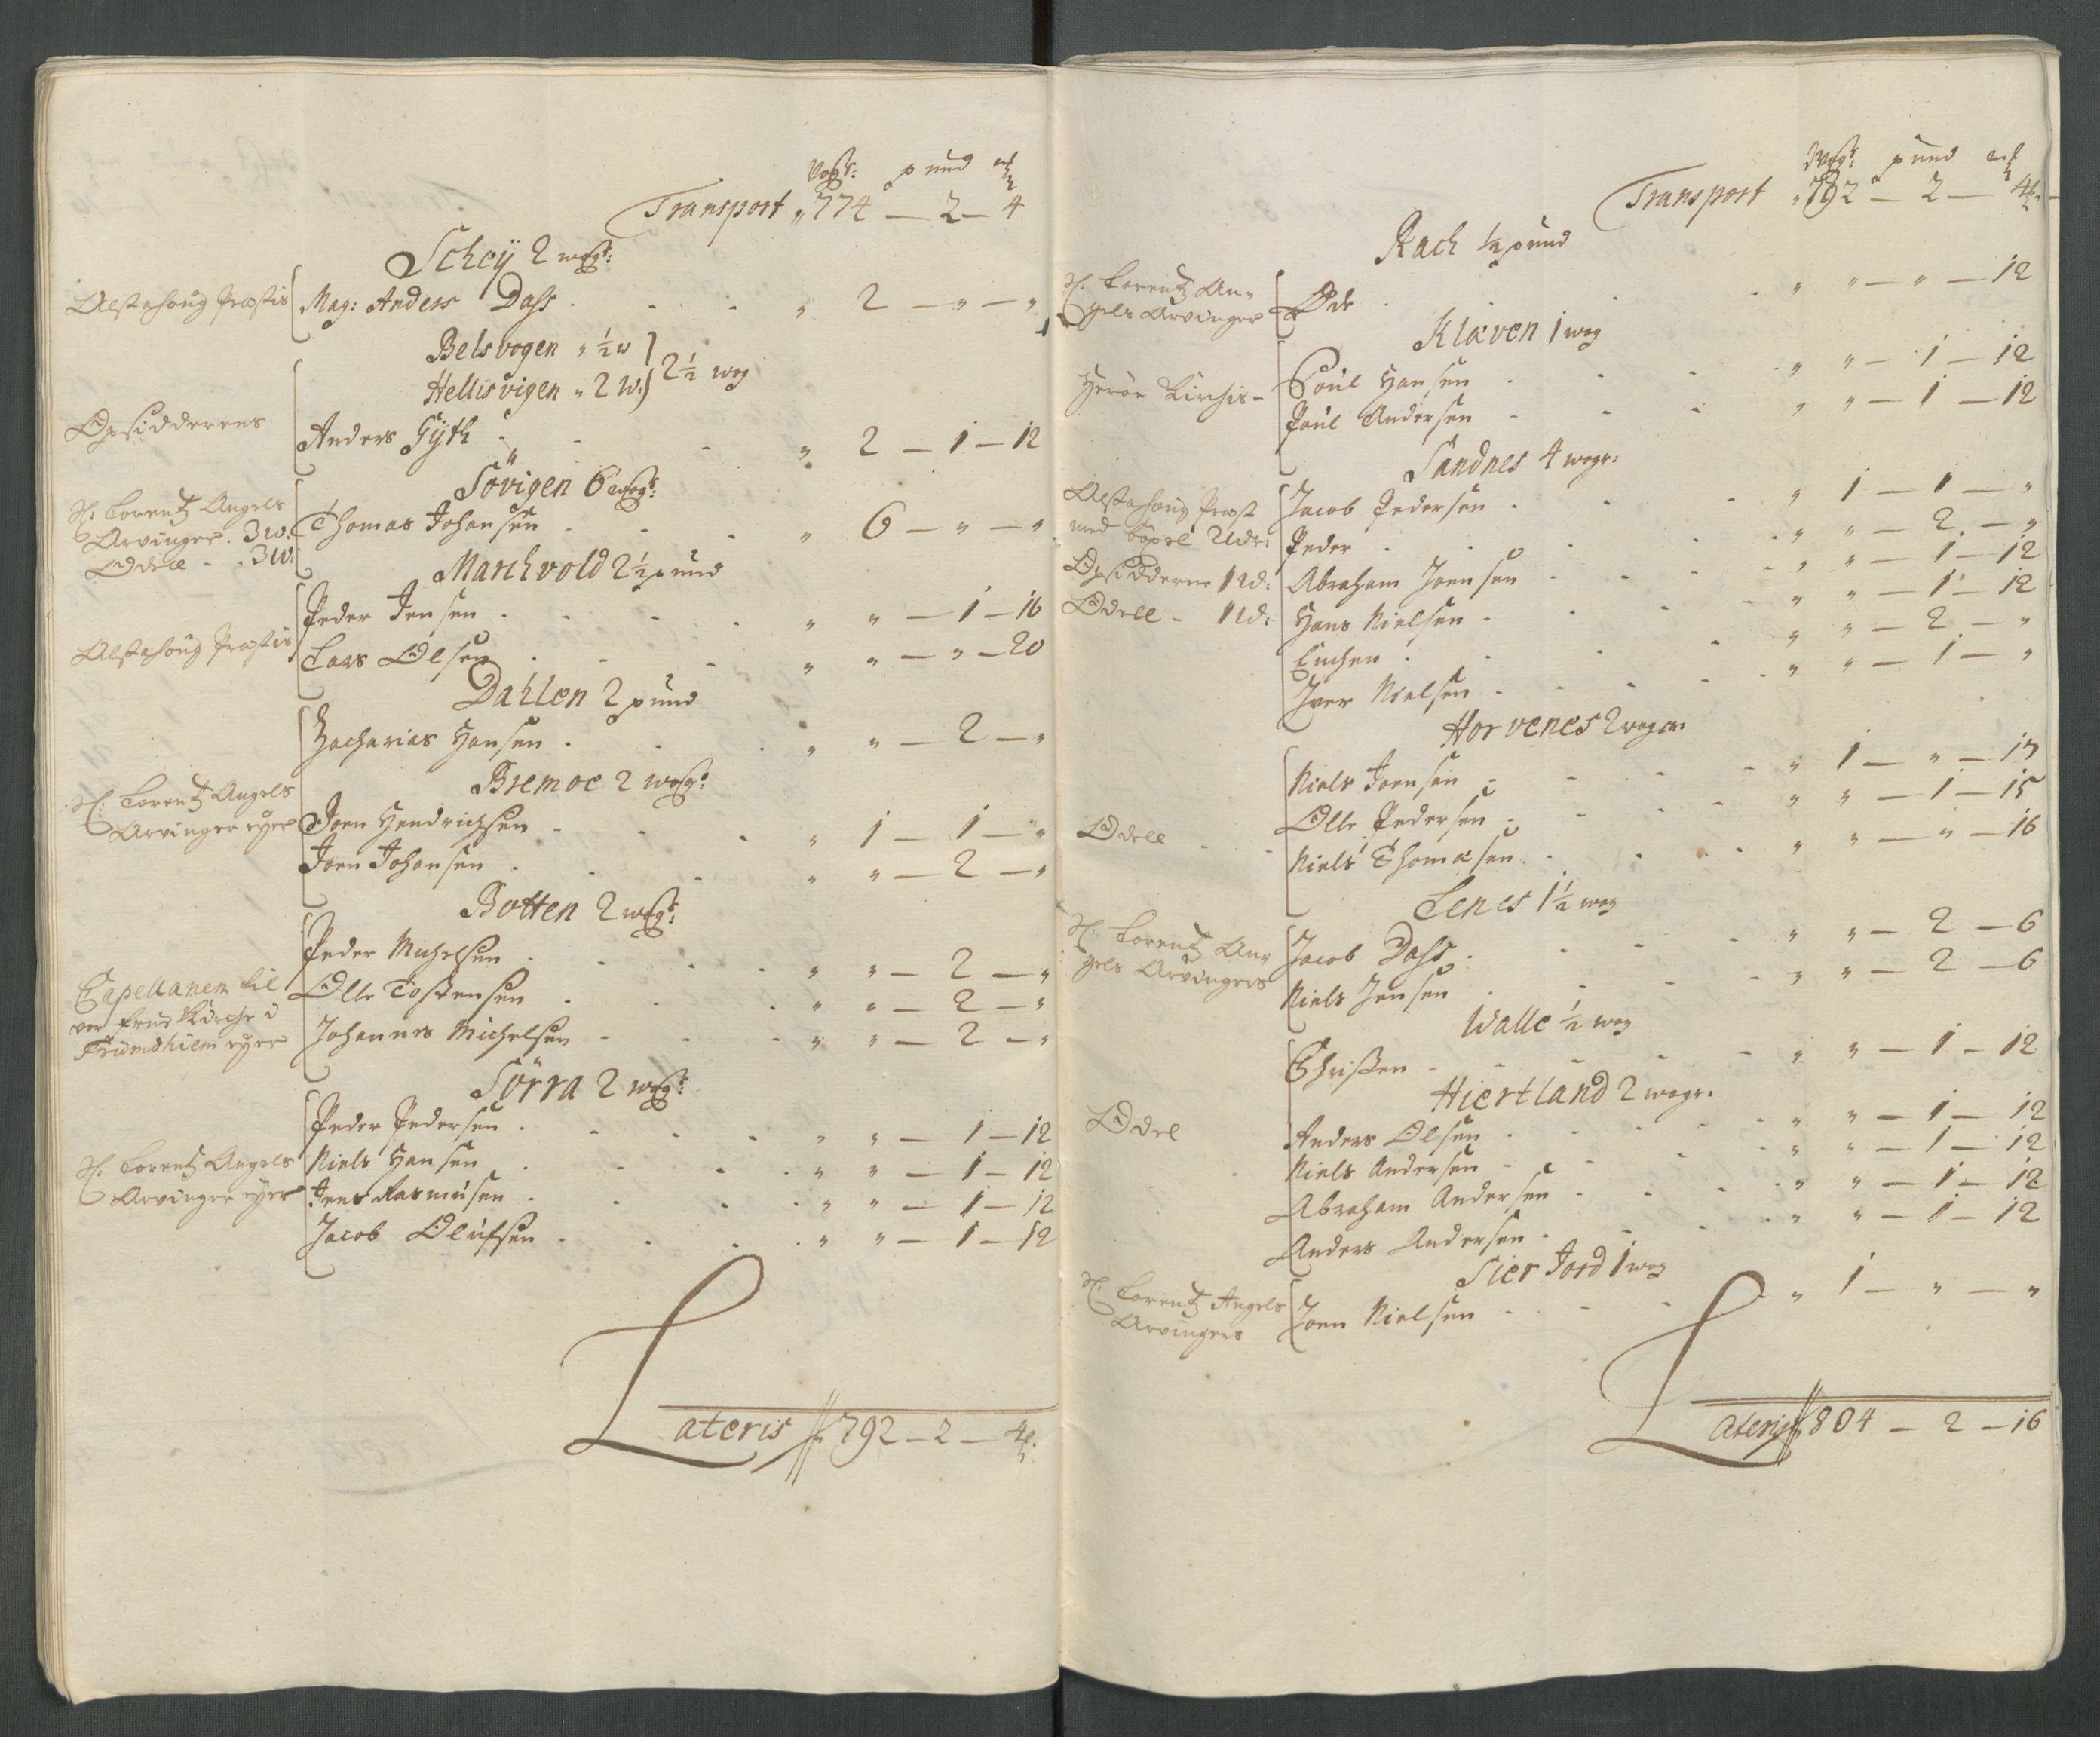 Wogr: pund mk
Transport " 774 — 2 — 4
Schey 2 wogr:
Alstahoug Prestis Mag: Anders Dass . . . " 2 — " — "
Belsvogen " ½ w
Hellisvigen " 2 w: 2½ wog
Opsidderens
Anders Gyth . . . " 2 — 1 — 12
Sövigen 6 wogr:
H: Lorentz Angels
Arvinger . 3 w. Thomas Johansen . . . " 6 — " — "
Odell . . 3 w:
Marchvold 2½ pund
Peder Jensen . . . . " " — 1 — 16
Alstahoug Prestis Lars Olsen . . . " " — " — 20
Dahlen 2 pund
Zacharias Hansen . . . " " — 2 — "
Bremoe 2 wogr:
H: Lorentz Angels
Arvinger eyer Joen Hendrichsen . . . " 1 — 1 — "
Joen Johansen . . . " " — 2 — "
Botten 2 wogr:
Peder Michelsen . . . . " " — 2 — "
Capellanen til Olle Tostensen . . . " " — 2 — "
vor frue Kirche i Johannes Michelsen . . . " " — 2 — "
Trundhiem eyer
Sörra 2 wogr:
Peder Pedersen . . . . " " — 1 — 12
H: Lorentz Angels Niels Hansen . . . . " " — 1 — 12
Arvinger eyer Jens Rasmusen . . . . " " — 1 — 12
Jacob Olufsen . . . . " " — 1 — 12
Lateris 792 — 2 — 4
Wogr: pund mk
Transport " 792 — 2 — 4
Rach ½ pund
H: Lorentz An-
gels Arvinger Øde . . . " " — " — 12
Klæven 1 wog
Herøe Kirchis Poul Hansen . . . . " " — 1 — 12
Poul Andersen . . . " " — 1 — 12
Sandnes 4 wogr:
Alstahoug Prest Jacob Pedersen . . . " 1 — 1 — "
med Bøxel 2 W: Peder . . . . " " — 2 — "
Opsidderne 1 W: Abraham Joensen . . . . " " — 1 — 12
Odell - 1 W: Hans Nielsen . . . . " " — 1 — 12
Enchen . . . . " " — 2 — "
Iver Nielsen . . . . " " — 1 — "
Horvenes 2 woger
Niels Joensen . . . . " 1 — " — 17
Odell . . Olle Pedersen . . . . " " — 1 — 15
Niels Thomæsen . . . . " " — " — 16
Lenes 1½ wog
H: Lorentz An-
gels Arvingers Jacob Dass . . . . " " — 2 — 6
Niels Jensen . . . . " " — 2 — 6
Walle ½ wog
Christen . . . . " " — 1 — 12
Hiertland 2 wogr.
Odel Anders Olsen . . . . " " — 1 — 12
Niels Andersen . . . . " " — 1 — 12
Abraham Andersen . . . . " " — 1 — 12
Anders Andersen . . . . " " — 1 — 12
Sier Jord 1 wog
H: Lorentz Angels
Arvingers Joen Nielsen . . . . " 1 — " — "
Lateris 804 — 2 — 16